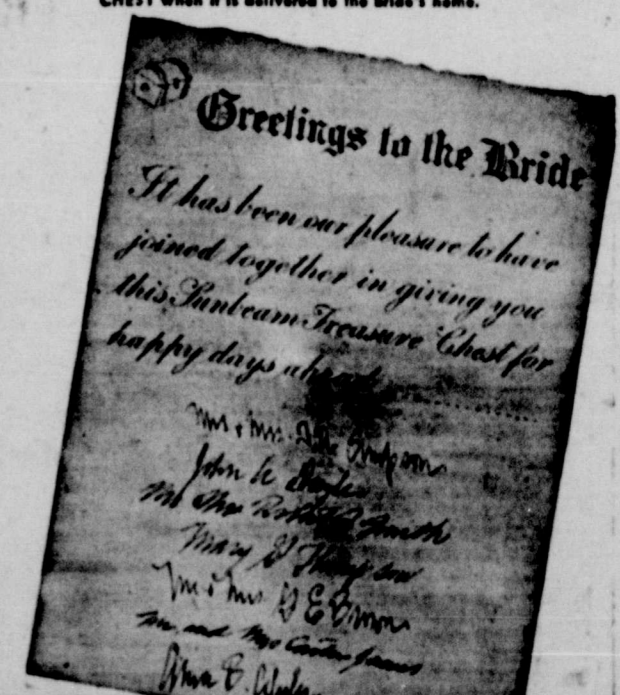 CHEST when it is delivered to the bride's home.
Greetings to the Bride
It has been our pleasure to have
joined together in giving you
this Sunbeam Treasure Chest for
happy days ahead
Mr & Mrs.
John
Smith
Mary G Thompson
Mr & Mrs G E Brown
Mr. and Mrs Carter James